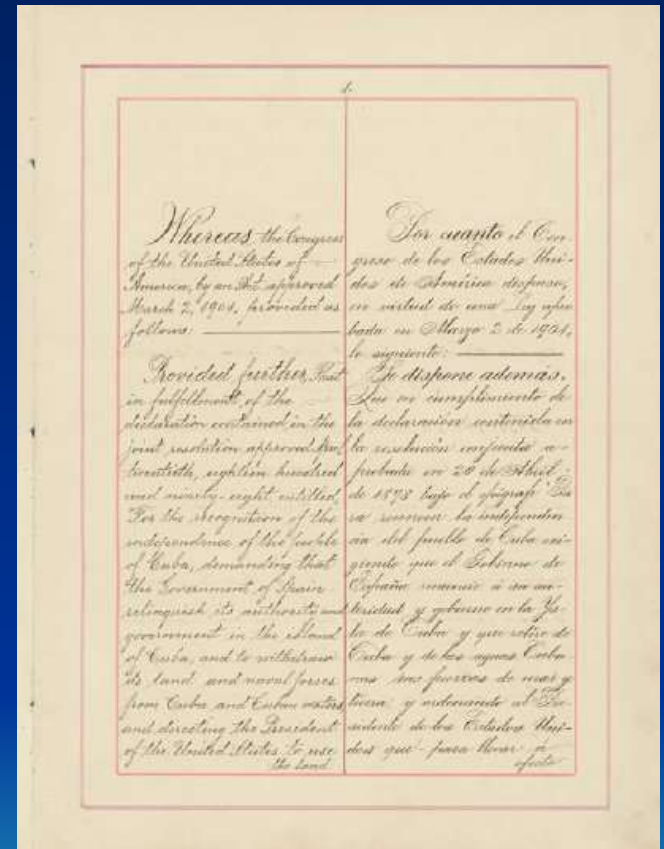 Whereas the Congress
of the United States of
America, by an Act approved
March 2, 1901, provided as
follows:
Provided further, That
in fulfillment of the
declaration contained in the
joint resolution approved April
twentieth, eighteen hundred
and ninety-eight entitled,
"For the recognition of the
independence of the people
of Cuba, demanding that
the Government of Spain
relinquish its authority and
government in the island
of Cuba, and to withdraw
its land and naval forces
from Cuba and Cuban waters
and directing the President
of the United States to use
the land
Por cuanto el Con-
greso de los Estados Uni-
dos de América dispuso,
en virtud de una Ley apro-
bada en Marzo 2 de 1901,
lo siguiente:
Se dispone además,
Que en cumplimiento de
la declaracion contenida en
la resolución conjunta a-
probada en 20 de Abril
de 1898 bajo el épigrafe "Pa-
ra reconocer la independen-
cia del pueblo de Cuba exi-
giendo que el Gobierno de
España renuncie á su au-
toridad y gobierno en la Ys-
la de Cuba y que retire de
Cuba y de las aguas Cuba-
nas sus fuerzas de mar y
tierra, y ordenando al Pre-
sidente de los Estados Uni-
dos que para llevar á
efecto